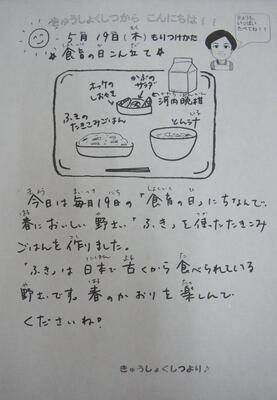 きゅうしょくしつから こんにちは！！
5月19日(木)もりつけかた
☆食育の日こん立て☆
ホッケのしおやき
かぶのサラダ
河内晩柑
ふきのたきこみごはん
とんじる
今日は毎月19日の「食育の日」にちなんで、
春においしい野さい「ふき」を使ったたきこみ
ごはんを作りました。
「ふき」は日本で古くから食べられている
野さいです。春のかおりを楽しんで
くださいね♪
きゅうしょくしつより♪